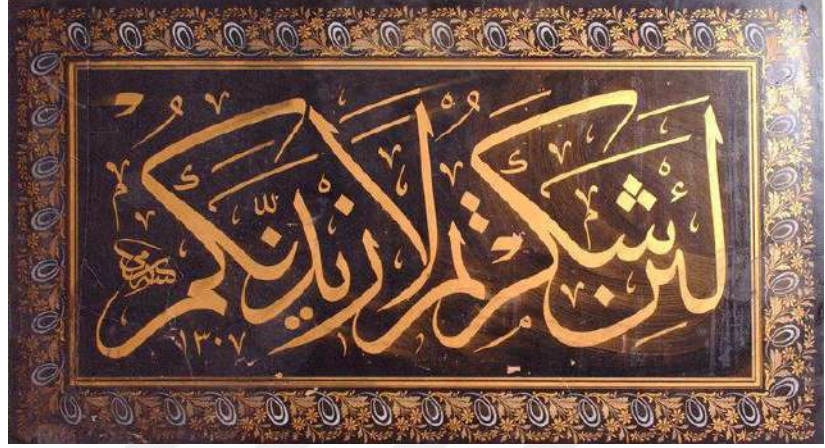 لَئِن شَكَرْتُمْ لَأَزِيدَنَّكُمْ
١٣٠٧